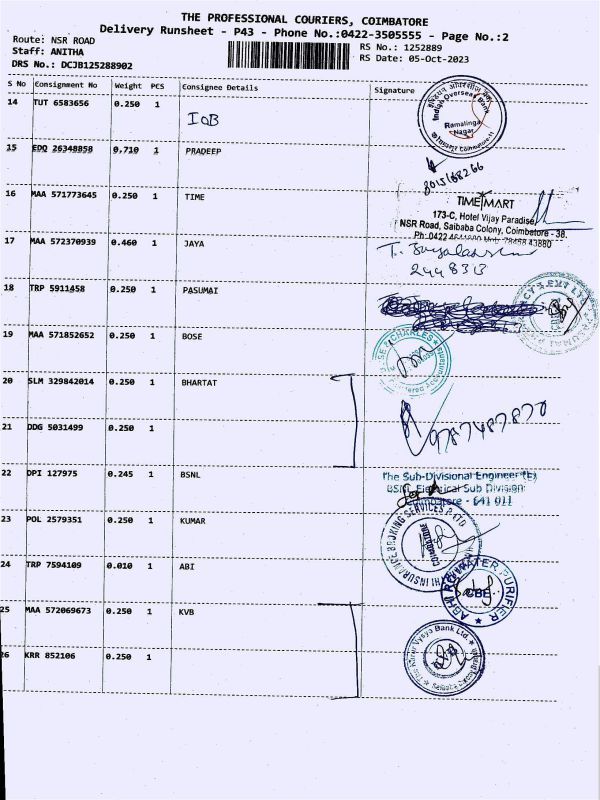 THE PROFESSIONAL COURIERS, COIMBATORE
Delivery Runsheet - P43 - Phone No.:0422-3505555 - Page No.:2
Route: NSR ROAD
Staff: ANITHA
DRS No.: DCJB125288902
RS No.: 1252889
RS Date: 05-Oct-2023
S No Consignment No Weight PCS Consignee Details Signature
14 TUT 6583656 0.250 1 IOB
Indian Overseas Bank
Ramalinga
Nagar
15 EDQ 26348858 0.710 1 PRADEEP
16 MAA 571773645 0.250 1 TIME
TIME MART
173-C, Hotel Vijay Paradise,
NSR Road, Saibaba Colony, Coimbatore - 38.
17 MAA 572370939 0.460 1 JAYA
244 8313
18 TRP 5911458 0.250 1 PASUMAI
19 MAA 571852652 0.250 1 BOSE
20 SLM 329842014 0.250 1 BHARTAT
21 DDG 5031499 0.250 1
9787487870
22 DPI 127975 0.245 1 BSNL
The Sub-Divisional Engineer (E)
BSNL Electrical Sub Division
Coimbatore - 641 011
23 POL 2579351 0.250 1 KUMAR
24 TRP 7594109 0.010 1 ABI
WATER PURIFIER
CBE
25 MAA 572069673 0.250 1 KVB
The Karur Vysya Bank Ltd.
26 KRR 852106 0.250 1